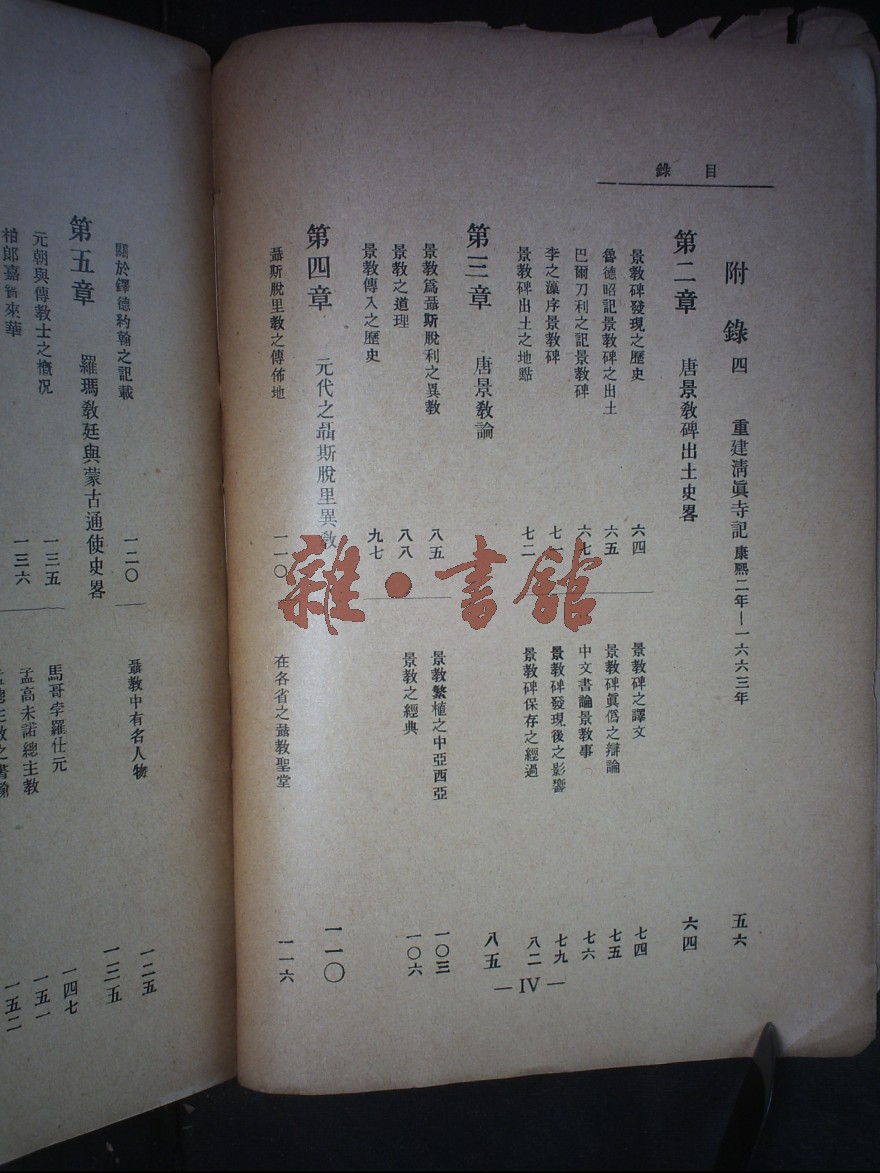 目錄
附錄四 重建淸眞寺記 康熙二年—一六六三年 五六
第二章 唐景敎碑出土史畧 六四
景教碑發現之歷史 六四
景教碑之譯文 七四
魯德昭記景教碑之出土 六五
景教碑眞僞之辯論 七五
巴爾刀利之記景教碑 六七
中文書論景教事 七六
李之藻序景教碑
景教碑發現後之影響 七九
景教碑出土之地點 七二
景教碑保存之經過 八二
第三章 唐景敎論 八五
景教爲聶斯脫利之異教 八五
景教繁植之中亞西亞 一〇三
景教之道理 八八
景教之經典 一〇六
景教傳入之歷史 九七
第四章 元代之聶斯脫里異敎 一一〇
聶斯脫里教之傳佈地 一一〇
在各省之聶教聖堂 一一六
— IV —
關於鐸德約翰之記載 一二〇
聶教中有名人物 一二五
第五章 羅瑪敎廷與蒙古通使史畧 一三五
元朝與傳教士之槪况 一三五
馬哥孛羅仕元 一四七
柏郎嘉賓來華 一三六
孟高未諾總主教 一五一
一五二
雜·書館